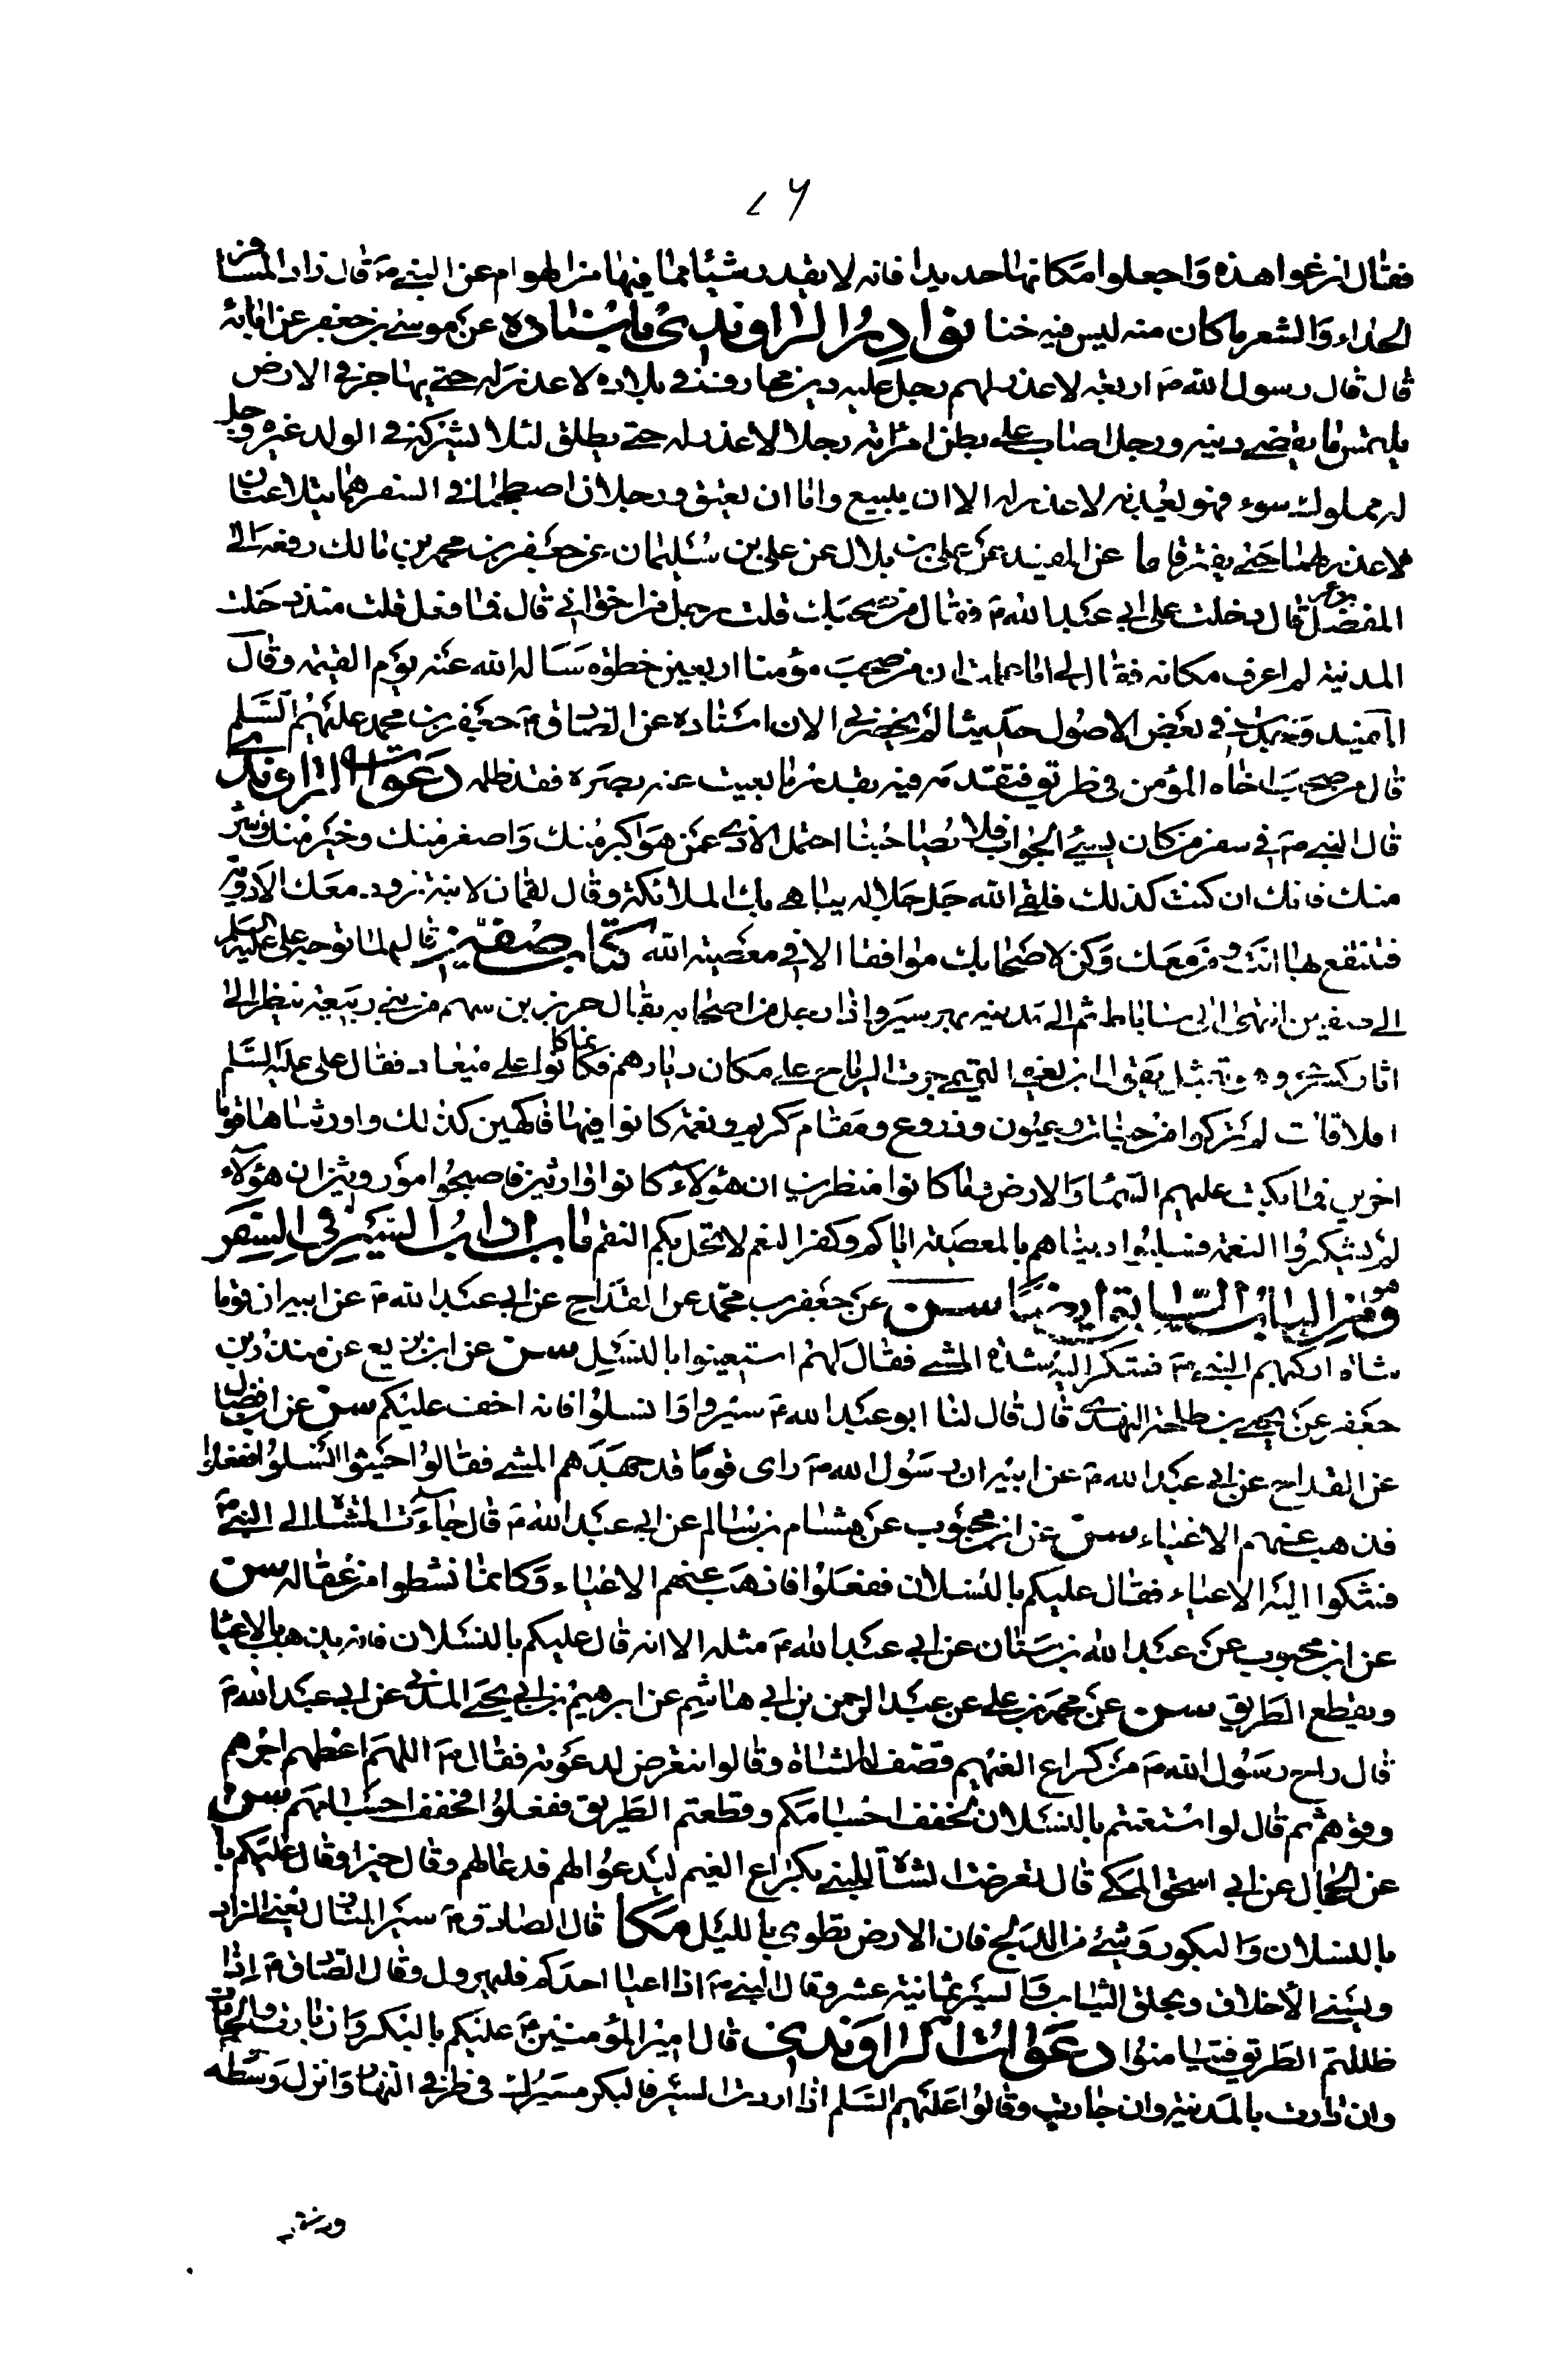 ٧٦
فقال انزعوا هذه واجعلوا مكانها حديدا فانه لا يقدر شيئا مما فيها من الهوام عن النبي ص قال زاد المسافر
الحداء والشعر ما كان منه ليس فيه خنا نوادر الراوندي باسناده عن موسى بن جعفر عن ابائه
قال قال رسول الله ص اربعة لا عذر لهم رجل عليه دين محارف في بلاده لا عذر له حتى يهاجر في الارض
يلتمس ما يقضي دينه ورجل اصاب على بطن امراته رجلا لا عذر له حتى يطلق لئلا يشركه في الولد غيره ورجل
له مملوك سوء فهو يعذبه لا عذر له الا ان يبيع واما ان يعتق ورجلان اصطحبا في السفر هما يتلاعنان
لا عذر لهما حتى يفترقا ما عن المفيد عن علي بن بلال عن علي بن سليمان عن جعفر بن محمد بن مالك رفعه الى
المفضل بن عمر قال دخلت على ابي عبد الله ع فقال من صحبك قلت رجل من اخواني قال فما فعل قلت منذ دخلت
المدينة لم اعرف مكانه فقال لي اما علمت ان من صحب مؤمنا اربعين خطوة سأله الله عنه يوم القيمة وقال
المفيد وجدت في بعض الاصول حديثا لم يحضرني الان اسناده عن الصادق ع جعفر بن محمد عليهم السلم
قال من صحب اخاه المؤمن في طريق فتقدمه فيه بقدر ما يغيب عنه بصره فقد ظلمه دعوات الراوندي
قال النبي ص في سفر من كان يسيئ الجوار فلا يصاحبنا احتمل الاذى عمن هو اكبر منك واصغر منك وخير منك وشر
منك فانك ان كنت كذلك فلقي الله جل جلاله يباهي بك الملائكة وقال لقمان لابنه تزود معك الادوية
فتنتفع بها انت ومن معك وكن لاصحابك موافقا الا في معصية الله كتاب صفين قال لما توجه علي عليه السلم
الى صفين انتهى الى ساباط ثم الى مدينة بهرسير واذا رجل من اصحابه يقال حريز بن سهم من بني ربيعة ينظر الى
اثار كسرى وهو يتمثل بقول ابن يعفر التميمي جرت الرياح على مكان ديارهم فكانما كانوا على ميعاد فقال علي عليه السلم
افلا قلت كم تركوا من جنات وعيون وزروع ومقام كريم ونعمة كانوا فيها فاكهين كذلك واورثناها قوما
اخرين فما بكت عليهم السماء والارض وما كانوا منظرين ان هؤلاء كانوا وارثين فاصبحوا موروثين ان هؤلاء
لم يشكروا النعمة فسلبوا دنياهم بالمعصية اياكم وكفر النعم لا تحل بكم النقم باب اداب السير في السفر
وهو من الباب السابق ايضا سن عن جعفر بن محمد عن القداح عن ابي عبد الله ع عن ابيه ان قوما
مشاة ادركهم النبي ص فشكوا اليه شدة المشي فقال لهم استعينوا بالنسل سن عن ابن بزيع عن منذر بن
جعفر عن يحيى بن طلحة النهدي قال قال لنا ابو عبد الله ع سيروا وانسلوا فانه اخف عليكم سن عن ابن فضال
عن القداح عن ابي عبد الله ع عن ابيه ان رسول الله ص راى قوما قد جهدهم المشي فقالوا اخبثوا انسلوا ففعلوا
فذهب عنهم الاعياء سن عن ابن محبوب عن هشام بن سالم عن ابي عبد الله ع قال جاءت المشاة الى النبي ص
فشكوا اليه الاعياء فقال عليكم بالنسلان ففعلوا فذهب عنهم الاعياء فكانما نشطوا من عقاله سن
عن ابن محبوب عن عبد الله بن سنان عن ابي عبد الله ع مثله الا انه قال عليكم بالنسلان فانه يذهب بالاعياء
ويقطع الطريق سن عن محمد بن علي عن عبد الرحمن بن ابي هاشم عن ابرهيم بن ابي يحيى المدني عن ابي عبد الله ع
قال راح رسول الله ص من كراع الغميم فصف له المشاة وقالوا نتعرض لدعوته فقال ص اللهم اعطهم اجرهم
وقوهم ثم قال لو استعنتم بالنسلان لخفف اجسامكم وقطعتم الطريق ففعلوا فخفف اجسامهم سن
عن الحجال عن ابي اسحق المكي قال تعرضت المشاة للنبي بكراع الغميم ليدعو لهم فدعا لهم وقال خيرا وقال عليكم با
بالنسلان والبكور وشيئ من الدلج فان الارض تطوى بالليل مكا قال الصادق ع سير المنازل يفني الزاد
ويسيئ الاخلاق ويخلق الثياب والسير ثمانية عشر وقال النبي ص اذا اعيا احدكم فليهرول وقال الصادق ع اذا
ظللتم الطريق فتيامنوا دعوات الراوندي قال امير المؤمنين ع عليكم بالبكر وان
وان دارت بالمدينة وان جارت وقالوا عليهم السلم اذا اردت السير فليكن مسيرك في طرفي النهار وانزل وسطه